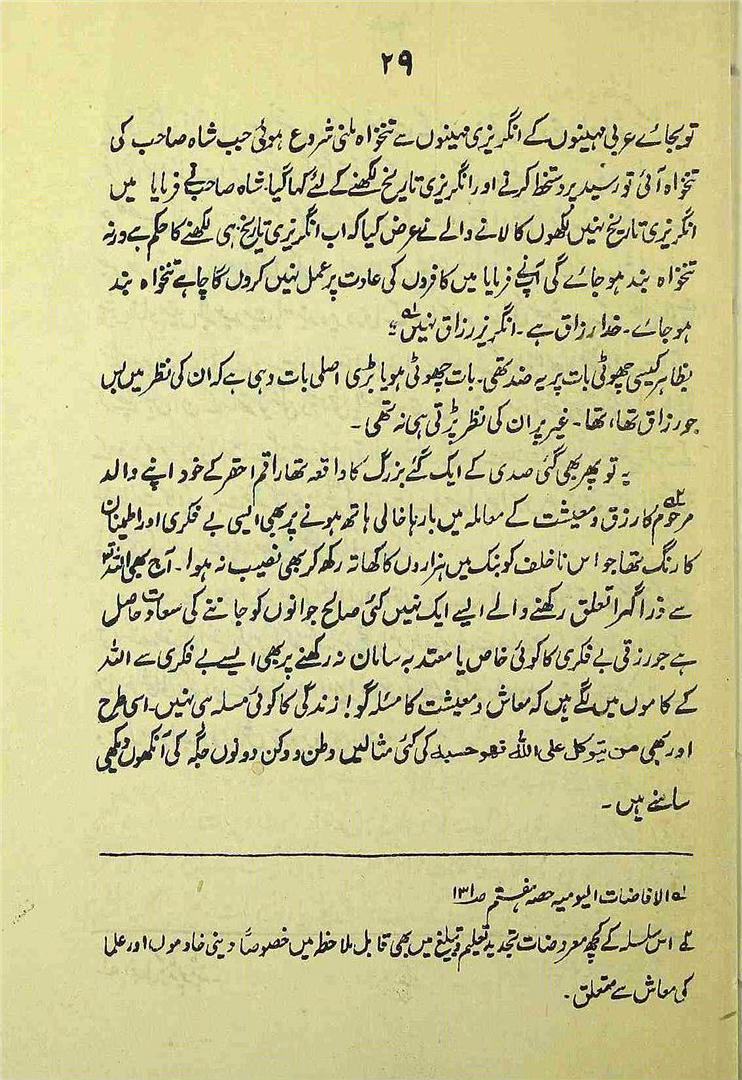 ۲۹
تو بجائے عربی مہینوں کے انگریزی مہینوں سے تنخواہ ملنی شروع ہوئی جب شاہ صاحب کی
تنخواہ آئی تو رسید پر دستخط کرنے اور انگریزی تاریخ لکھنے کے لئے کہا گیا۔ شاہ صاحب نے فرمایا میں
انگریزی تاریخ نہیں لکھوں گا لانے والے نے عرض کیا کہ اب انگریزی تاریخ ہی لکھنے کا حکم ہے ورنہ
تنخواہ بند ہو جائے گی آپنے فرمایا میں کافروں کی عادت پر عمل نہیں کروں گا چاہے تنخواہ بند
ہو جائے۔ خدا رزاق ہے۔ انگریز رزاق نہیں"؎۱
بظاہر کیسی چھوٹی بات پر یہ ضد تھی۔ بات چھوٹی ہو یا بڑی اصلی بات وہی ہے کہ ان کی نظر میں بس
جو رزاق تھا، تھا۔ غیر پر ان کی نظر پڑتی ہی نہ تھی۔
یہ تو پھر بھی گئی صدی کے ایک گئے بزرگ کا واقعہ تھا راقم احقر کے خود اپنے والد
مرحوم؎۲ کا رزق و معیشت کے معاملہ میں بارہا خالی ہاتھ ہونے پر بھی ایسی بے فکری اور اطمینان
کا رنگ تھا جو اس ناخلف کو بنک میں ہزاروں کا کھاتہ رکھ کر بھی نصیب نہ ہوا۔ آج بھی اللہ
سے ذرا گہرا تعلق رکھنے والے ایسے ایک نہیں کئی صالح جوانوں کو جاننے کی سعادت حاصل
ہے جو رزقی بے فکری کا کوئی خاص یا معتد بہ سامان نہ رکھنے پر بھی ایسے بے فکری سے اللہ
کے کاموں میں لگے ہیں کہ معاش و معیشت کا مسئلہ گویا زندگی کا کوئی مسلہ ہی نہیں۔ اسی طرح
اور بھی من یتوکل علی اللہ فھو حسبہ کی کئی مثالیں وطن و دکن دونوں جگہ کی آنکھوں دیکھی
سامنے ہیں۔
؎۱ الافاضات الیومیہ حصہ ہفتم صـ۱۳۱
؎۲ اس سلسلہ کے کچھ معروضات تجدید تعلیم و تبلیغ میں بھی قابل ملاحظہ ہیں خصوصاً دینی خادموں اور علما
کی معاش سے متعلق۔